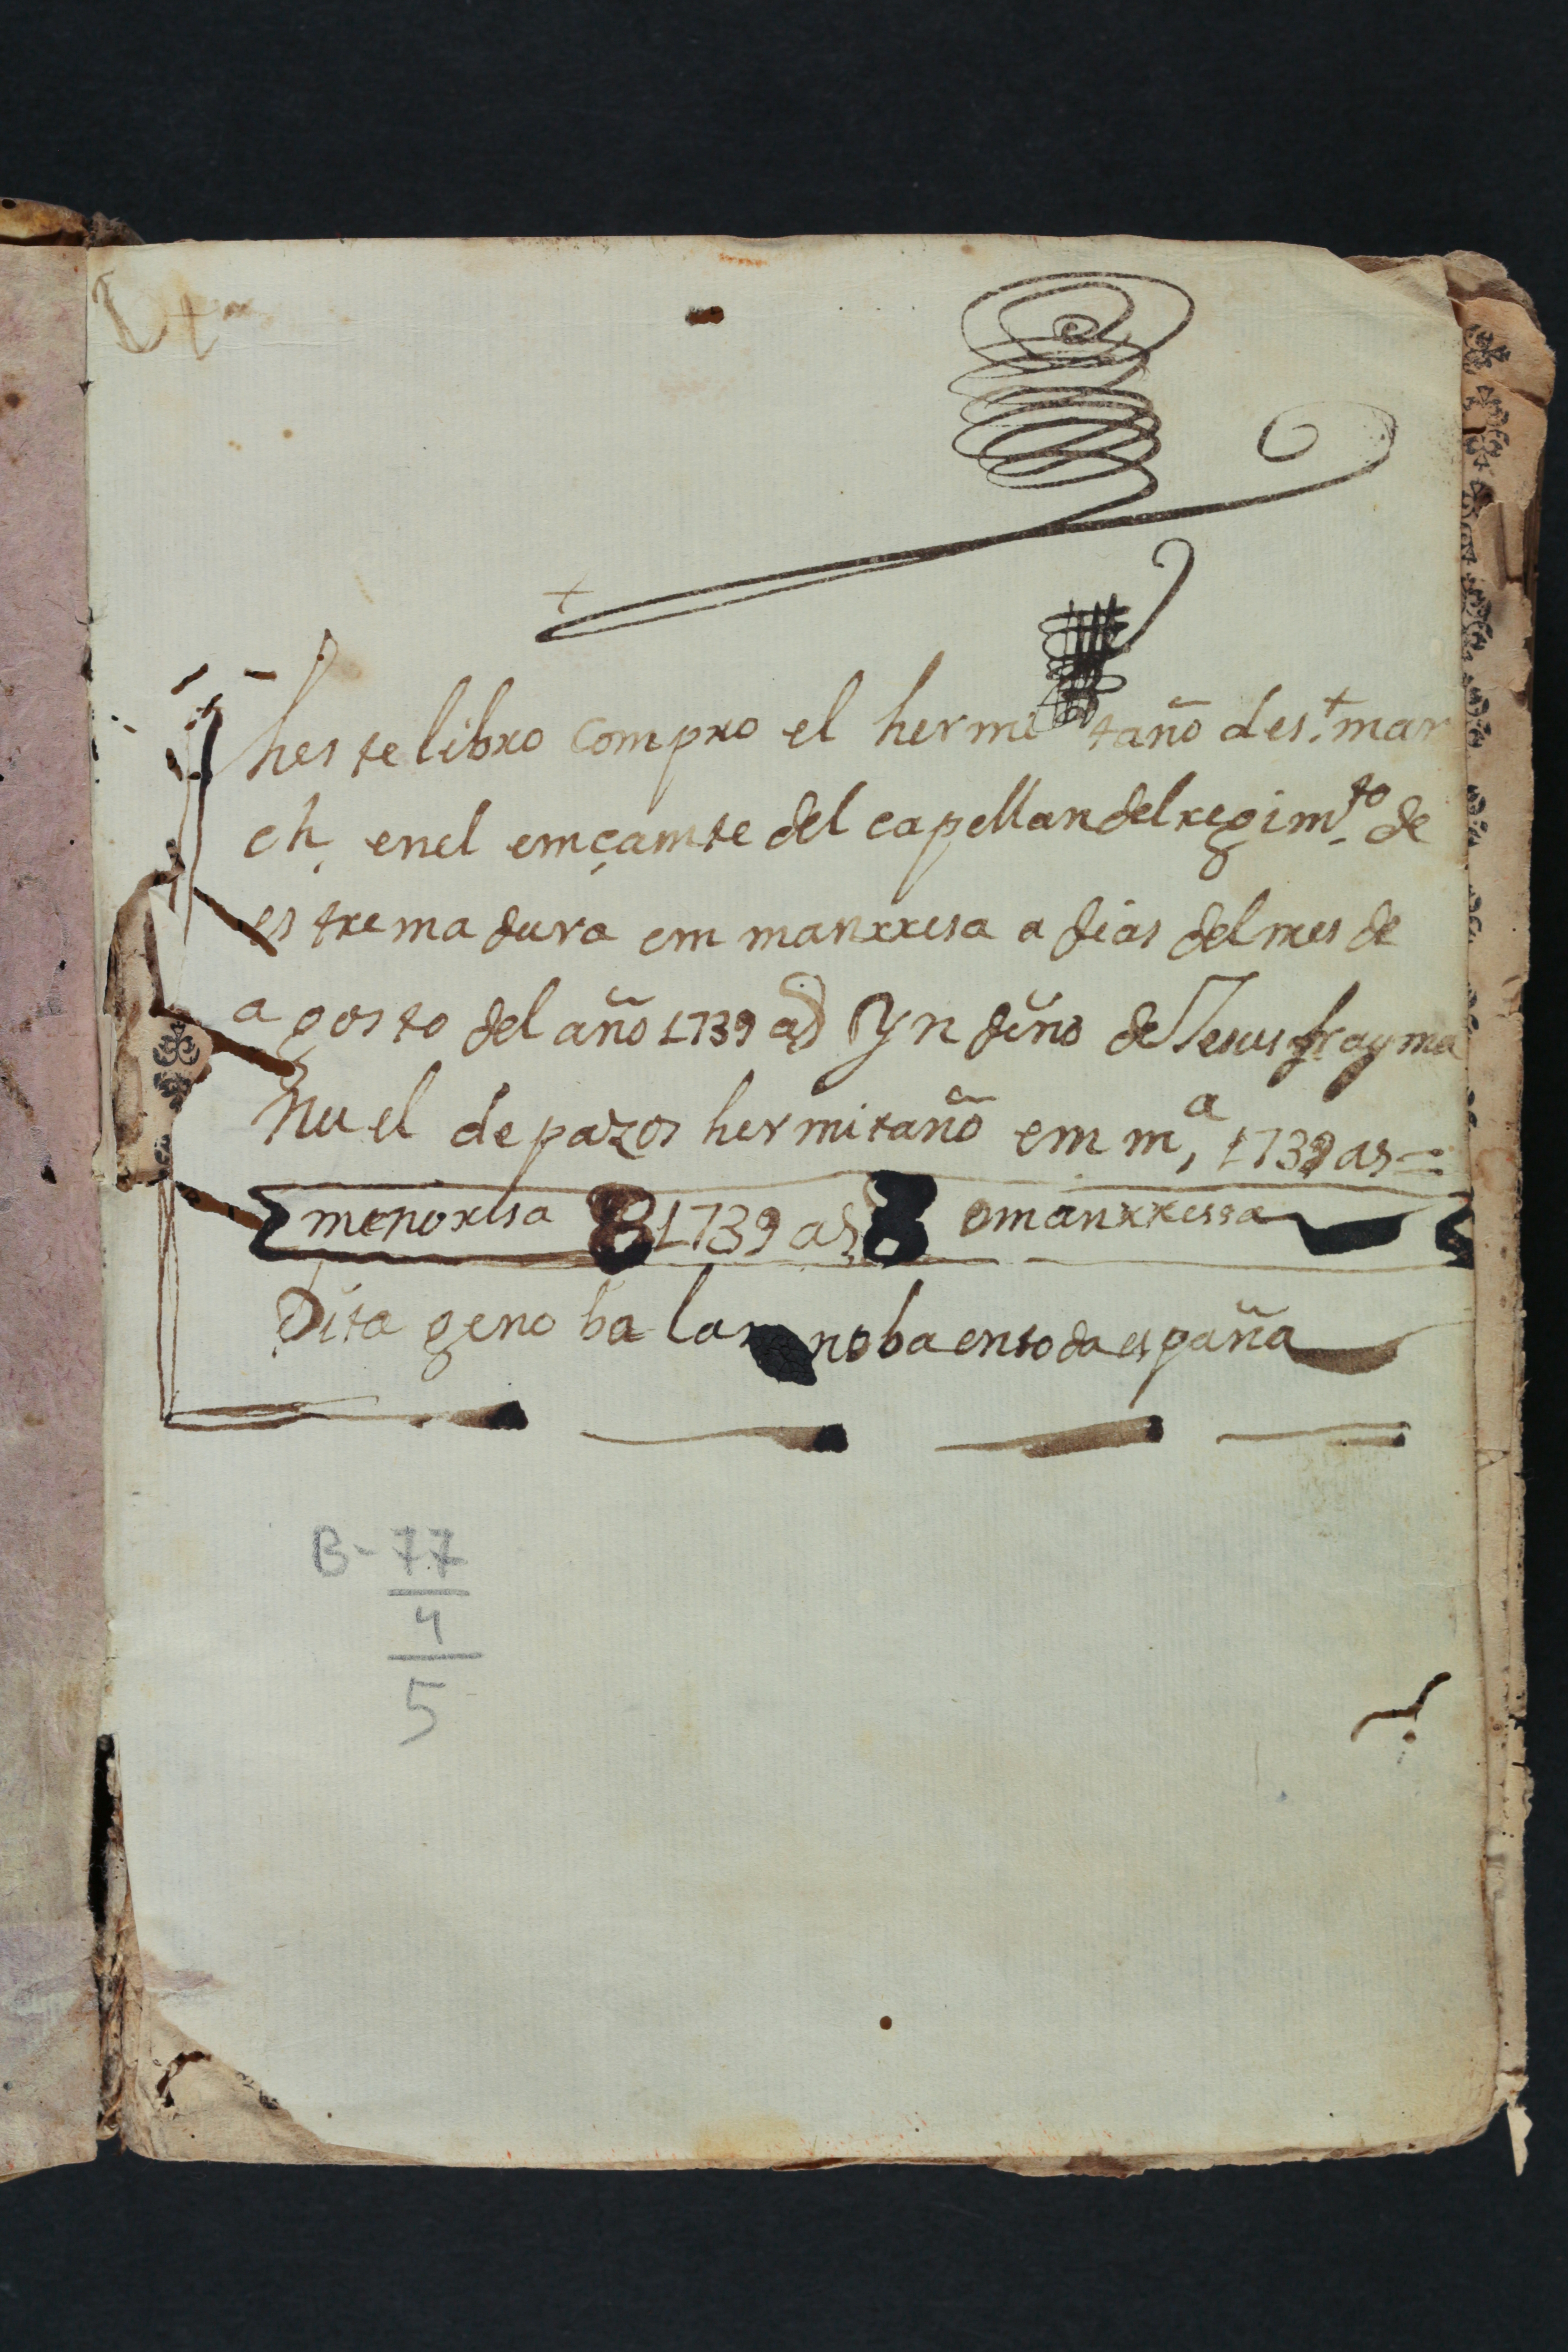 heste libro compro el hermitaño de s.t mar
ch, en el emçamte del capellan del regim.to de
estremadura em manrresa a dias del mes de
agosto del año 1739 as Yn dino de Jesus fray ma
nuel de pazos hermitaño em m,a 1739 as =
menorisa 8 1739 as 8 o manrressa
Dita geno ba la noba en toda españa
B-77
4
5